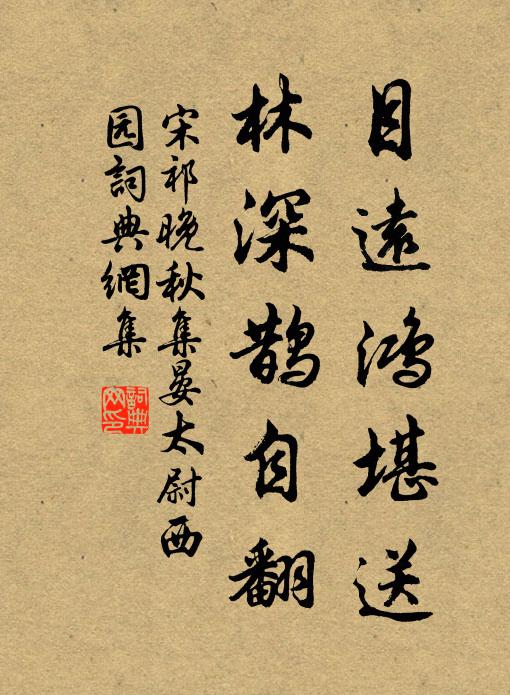 目遠鴻堪送
林深鹊自翻
宋祁晚秋集晏太尉西
园詞典網集
詞典
网印